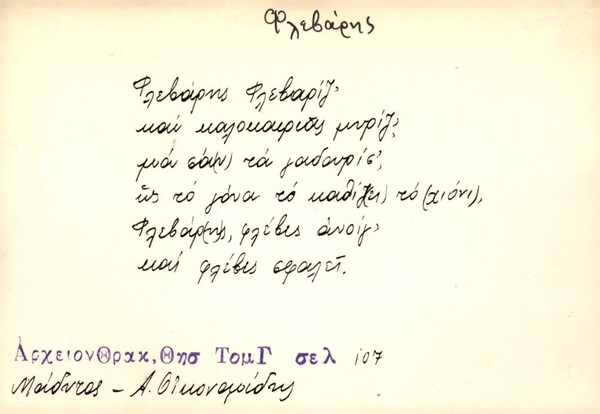 Φλεβάρης
Φλεβάρης Φλεβαρίζ'
καί καλοκαιριές μυρίζ'
μιά σά(ν) τά γαδουρίσ',
ὥς τό γόνα τό καθίζ(ει) τό (χιόνι),
Φλεβάρ(η)ς, φλέβες ἀνοίγ'
καί φλέβες σφαλεῖ.
ἈρχειονΘρακ,Θησ ΤομΓ σελ 107
Μάδυτος - Α. Οἰκονομίδης